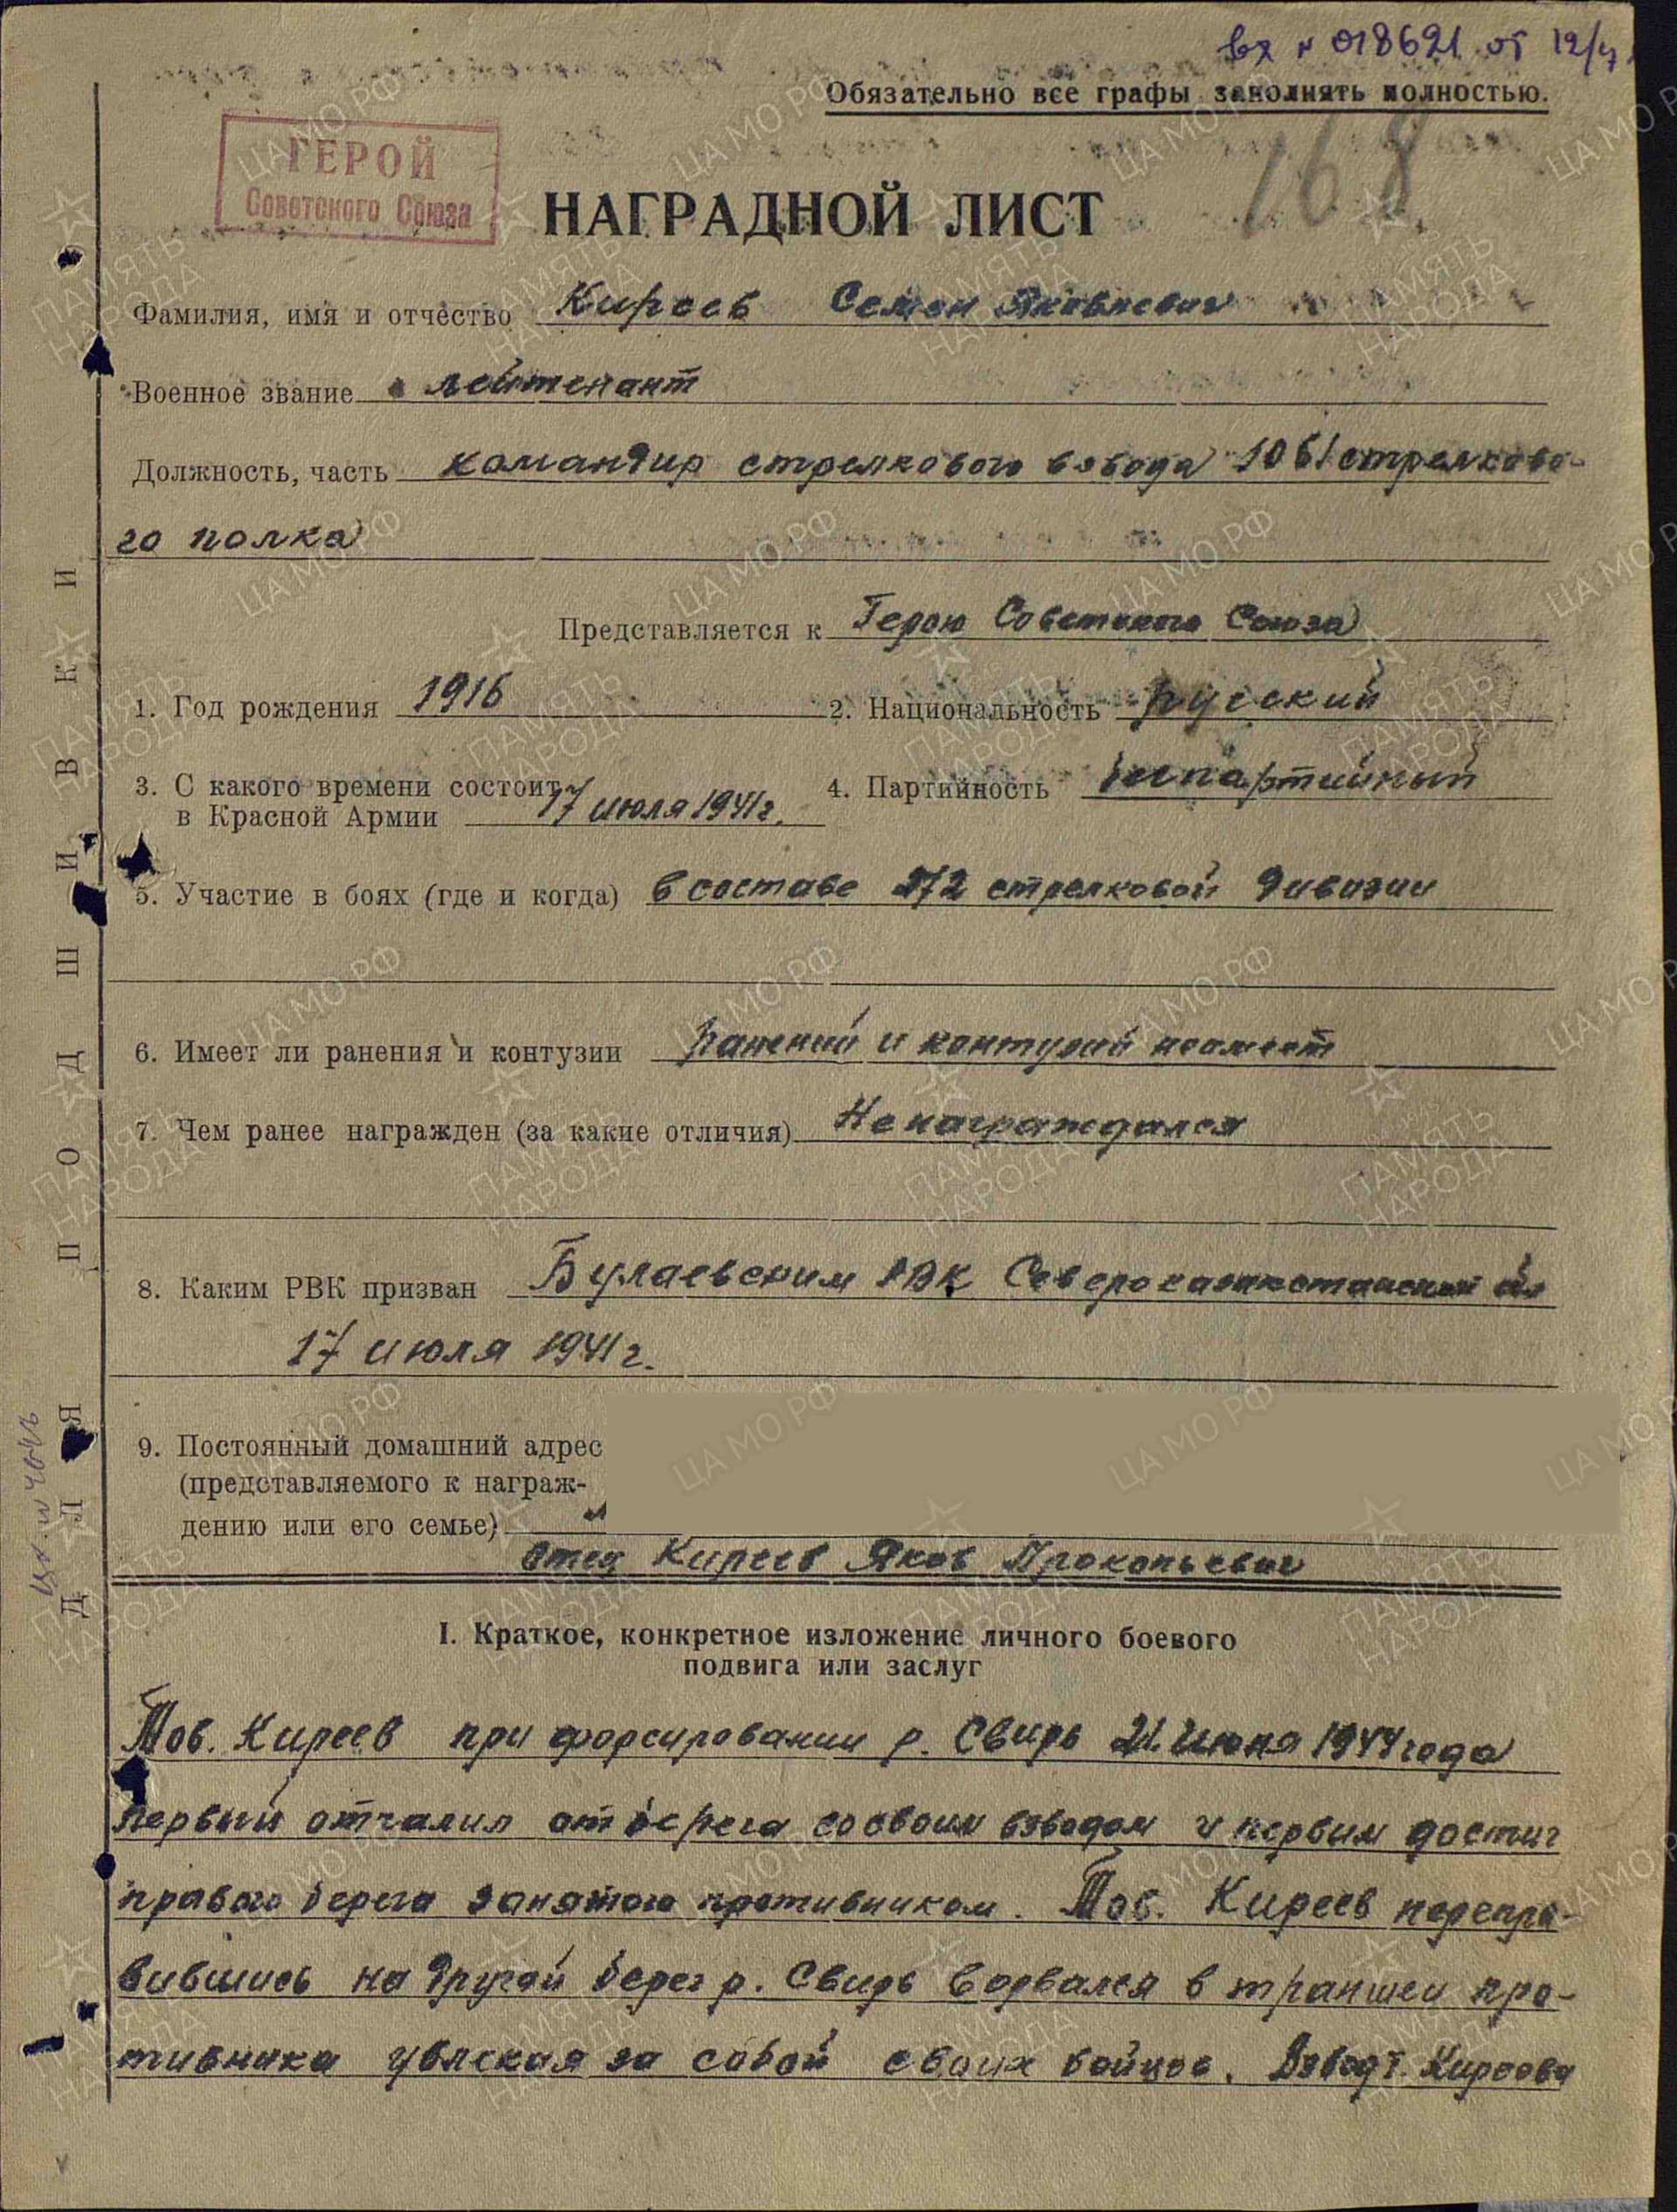 вх № 018621 от 12/7
Обязательно все графы заполнять полностью.
168
ГЕРОЙ
Советского Союза
НАГРАДНОЙ ЛИСТ
Фамилия, имя и отчество Киреев Семен Яковлевич
Военное звание лейтенант
Должность, часть командир стрелкового взвода 1061 стрелково-
го полка
Представляется к Герою Советского Союза
1. Год рождения 1916 2. Национальность русский
3. С какого времени состоит
в Красной Армии 17 июля 1941 г. 4. Партийность
5. Участие в боях (где и когда) в составе 272 стрелковой дивизии
6. Имеет ли ранения и контузии ранений и контузий неимеет
7. Чем ранее награжден (за какие отличия) Не награждался
8. Каким РВК призван Булаевским РВК Северо казахстанской
17 июля 1941 г.
9. Постоянный домашний адрес
(представляемого к награж-
дению или его семье)
отец Киреев Яков Прокопьевич
I. Краткое, конкретное изложение личного боевого
подвига или заслуг
Тов. Киреев при форсировании р. Свирь 21. июня 1944 года
первый отчалил от берега со своим взводом и первым достиг
правого берега занятого противником. Тов. Киреев перепра-
вившись на другой берег р. Свирь ворвался в траншеи про-
тивника увлекая за собой своих бойцов. Взвод т. Киреева
ДЛЯ ПОДШИВКИ
ПАМЯТЬ НАРОДА
ЦА МО РФ